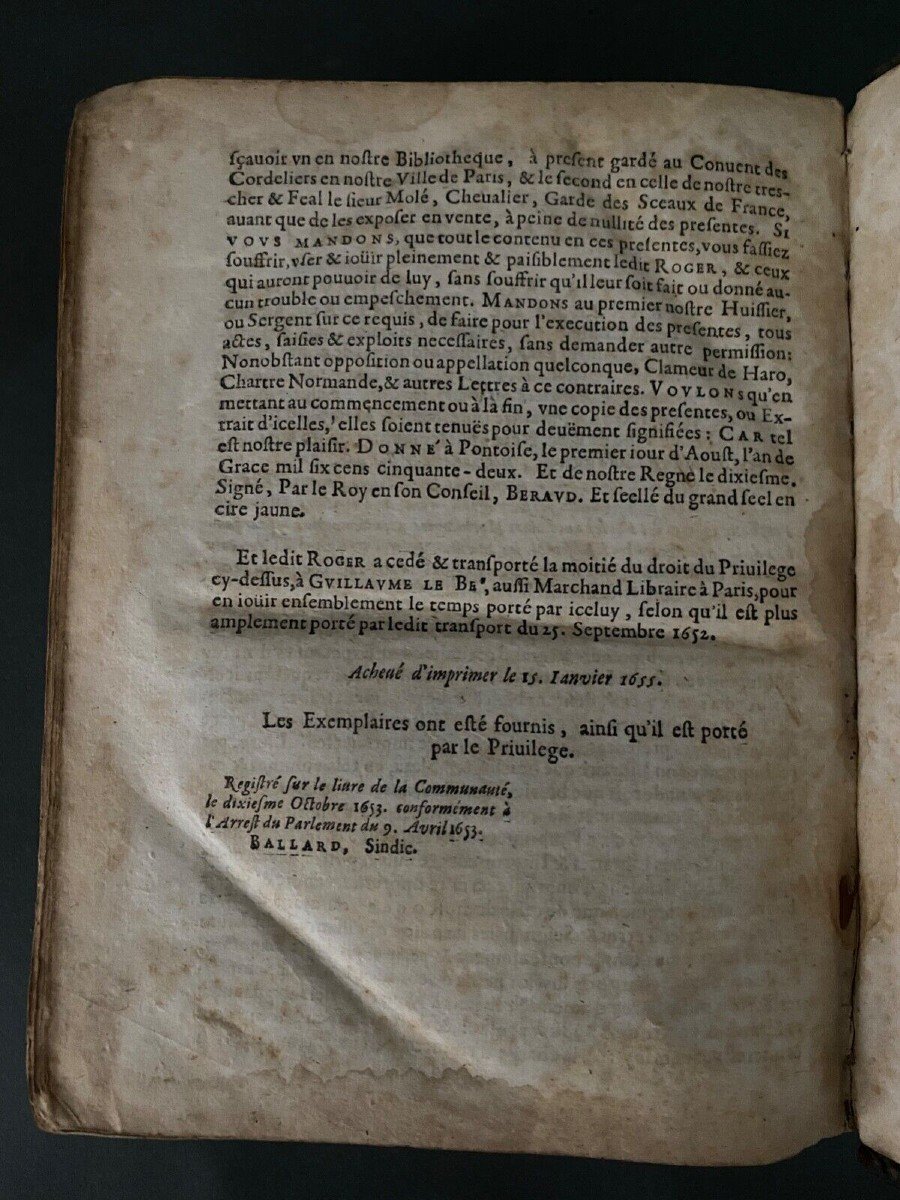 sçauoir vn en nostre Bibliotheque, à present gardé au Conuent des
Cordeliers en nostre Ville de Paris, & le second en celle de nostre tres-
cher & Feal le sieur Molé, Cheualier, Garde des Sceaux de France,
auant que de les exposer en vente, à peine de nullité des presentes. SI
VOVS MANDONS, que tout le contenu en ces presentes, vous fassiez
souffrir, vser & ioüir pleinement & paisiblement ledit ROGER, & ceux
qui auront pouuoir de luy, sans souffrir qu'il leur soit fait ou donné au-
cun trouble ou empeschement. MANDONS au premier nostre Huissier,
ou Sergent sur ce requis, de faire pour l'execution des presentes, tous
actes, saisies & exploits necessaires, sans demander autre permission;
Nonobstant opposition ou appellation quelconque, Clameur de Haro,
Chartre Normande, & autres Lettres à ce contraires. VOVLONS qu'en
mettant au commencement ou à là fin, vne copie des presentes, ou Ex-
trait d'icelles, elles soient tenuës pour deuëment signifiées: CAR tel
est nostre plaisir. DONNÉ à Pontoise, le premier iour d'Aoust, l'an de
Grace mil six cens cinquante-deux. Et de nostre Regne le dixiesme.
Signé, Par le Roy en son Conseil, BERAVD. Et seellé du grand seel en
cire jaune.
Et ledit ROGER a cedé & transporté la moitié du droit du Priuilege
cy-dessus, à GVILLAVME LE BÉ, aussi Marchand Libraire à Paris, pour
en ioüir ensemblement le temps porté par iceluy, selon qu'il est plus
amplement porté par ledit transport du 25. Septembre 1652.
Acheué d'imprimer le 15. Ianvier 1655.
Les Exemplaires ont esté fournis, ainsi qu'il est porté
par le Priuilege.
Registré sur le liure de la Communauté,
le dixiesme Octobre 1653. conformément à
l'Arrest du Parlement du 9. Avril 1653.
BALLARD, Sindic.